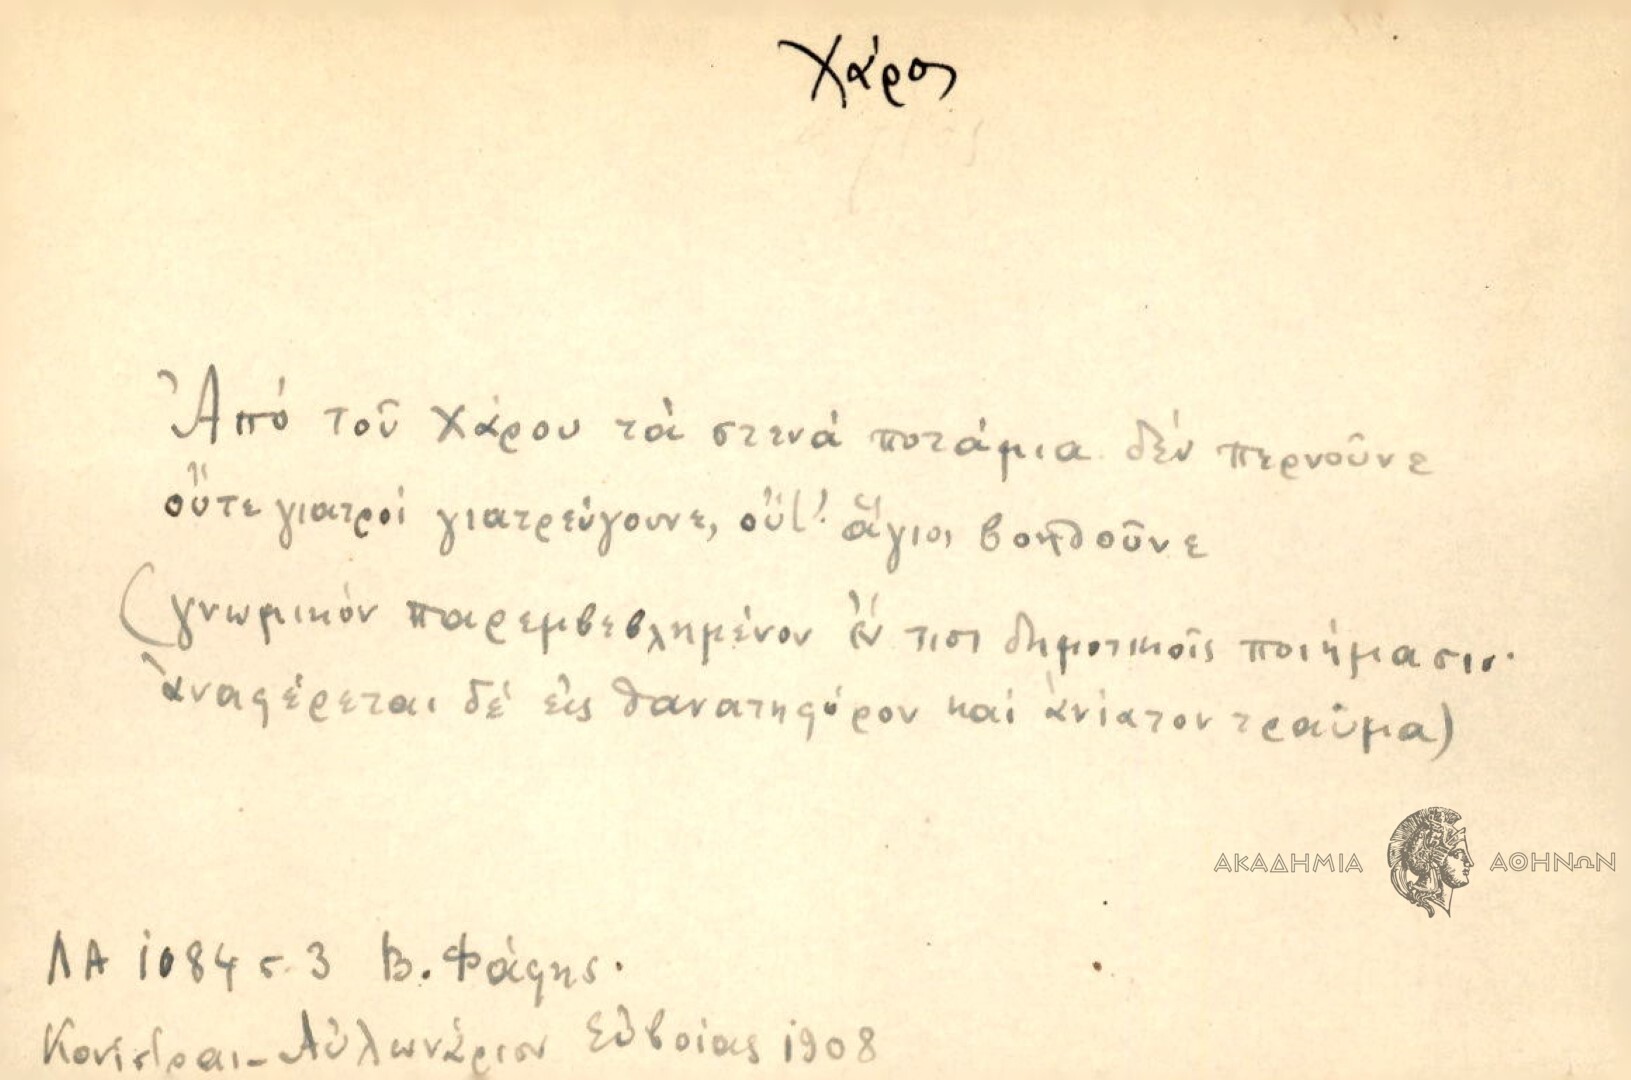 Χάρος
Ἀπό τοῦ Χάρου τὰ στενά ποτάμια δέν περνοῦνε
οὔτε γιατροί γιατρεύγουνε, οὔτ' ἅγιοι βοηθοῦνε
(γνωμικόν παρεμβεβλημένον ἔν τισι δημοτικοῖς ποιήμασιν·
ἀναφέρεται δέ εἰς θανατηφόρον καί ἀνίατον τραῦμα)
ΑΚΑΔΗΜΙΑ ΑΘΗΝΩΝ
ΛΑ 1084 σ. 3 Β. Φάφης.
Κονίστραι - Αὐλωνάριον Εὐβοίας 1908